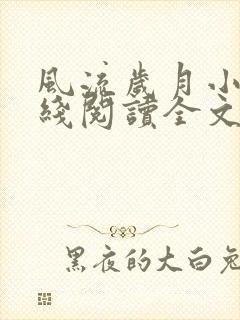 風流歲月小
綫閱讀全文
黑夜的大白兔